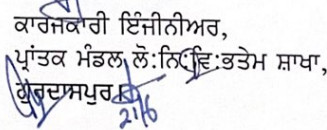 ਕਾਰਜਕਾਰੀ ਇੰਜੀਨੀਅਰ,
ਪ੍ਰਾਂਤਕ ਮੰਡਲ, ਲੋ:ਨਿ:ਵਿ:ਭਤੇਮ ਸ਼ਾਖਾ,
ਗੁਰਦਾਸਪੁਰ।
21/6